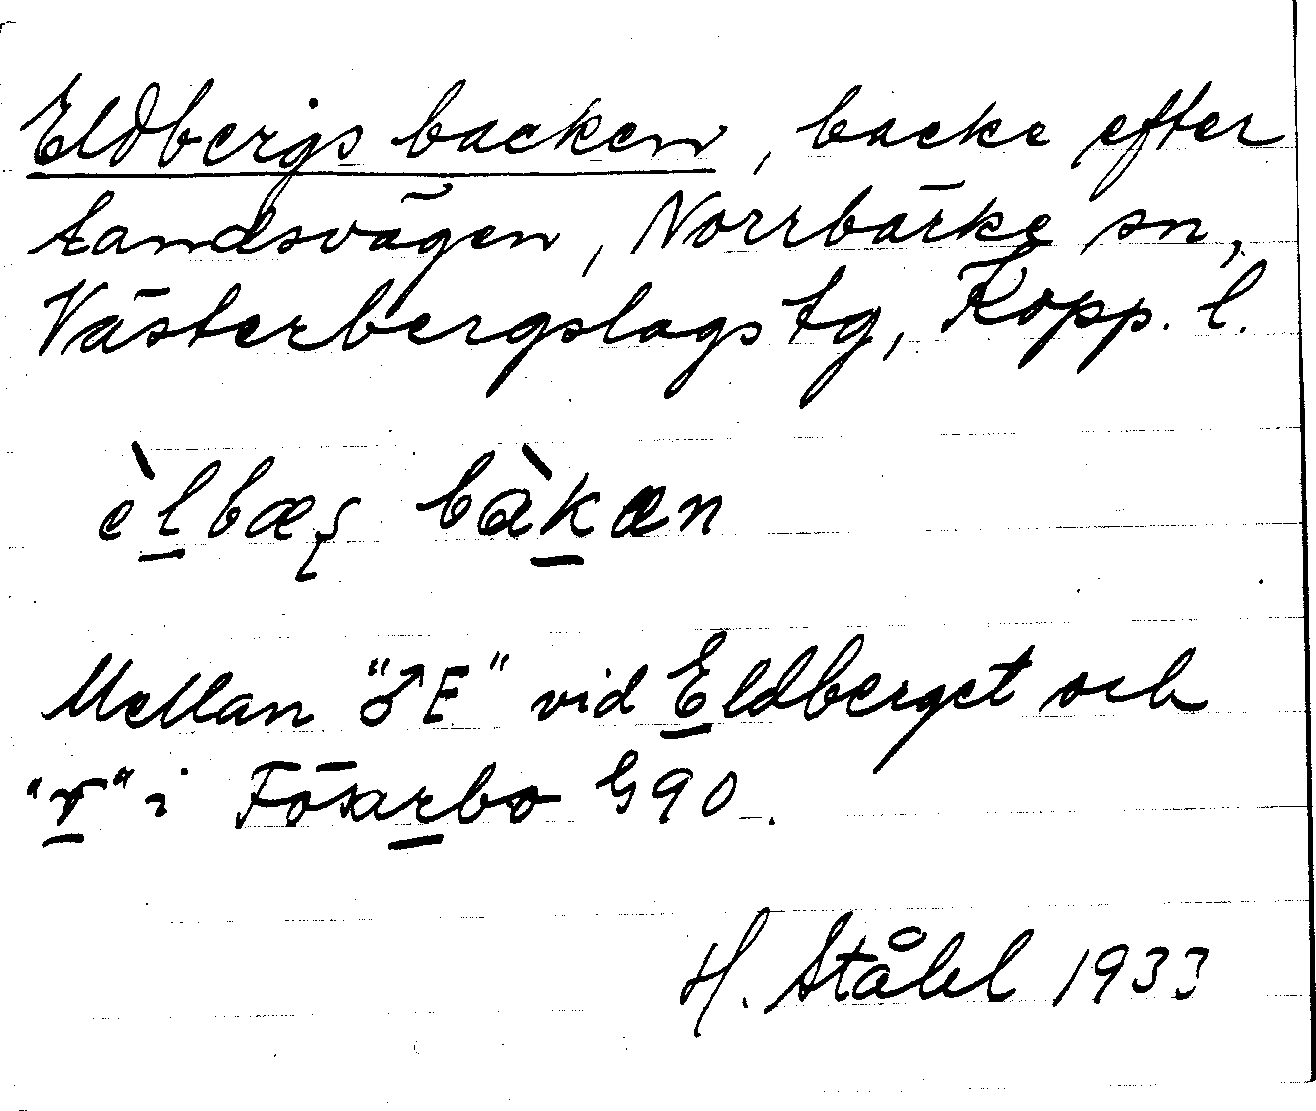 Eldbergs backen, backe efter
landsvägen, Norrbärke sn,
Västerbergslags tg, Kopp. l.
èlbæʂ bàkæn
Mellan "♂E" vid Eldberget och
i G90.
H. Ståhl 1933